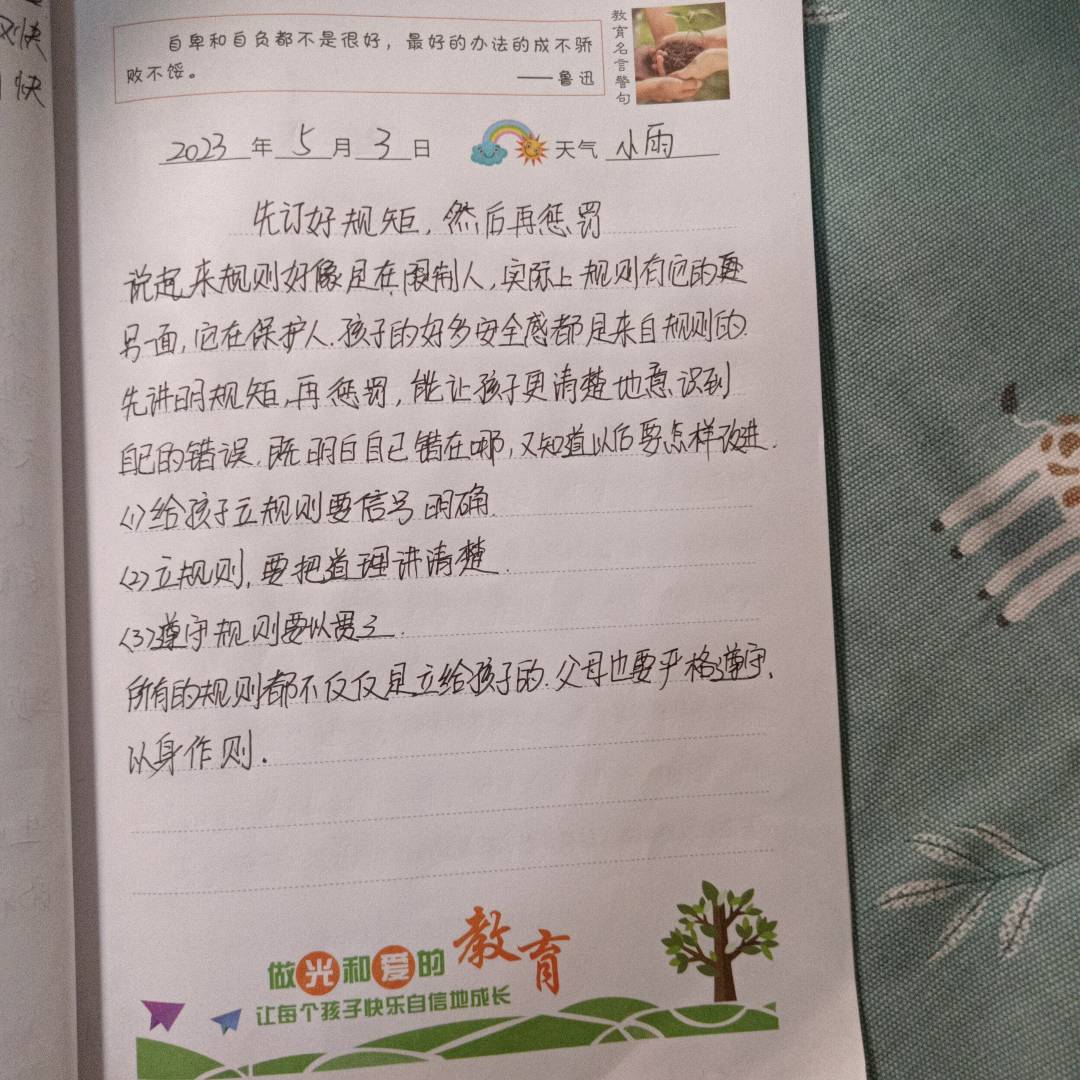 快
快
自卑和自负都不是很好，最好的办法的成不骄
败不馁。
——鲁迅
教育名言警句
2023年5月3日 天气 小雨
先订好规矩，然后再惩罚
说起来规则好像是在限制人，实际上规则有它的更
另一面，它在保护人.孩子的好多安全感都是来自规则的.
先讲明规矩,再惩罚，能让孩子更清楚地意识到
自己的错误.既明白自己错在哪，又知道以后要怎样改进.
(1)给孩子立规则要信号明确.
(2)立规则,要把道理讲清楚.
(3)遵守规则要以贯之.
所有的规则都不仅仅是立给孩子的.父母也要严格遵守、
以身作则.
做光和爱的教育
让每个孩子快乐自信地成长